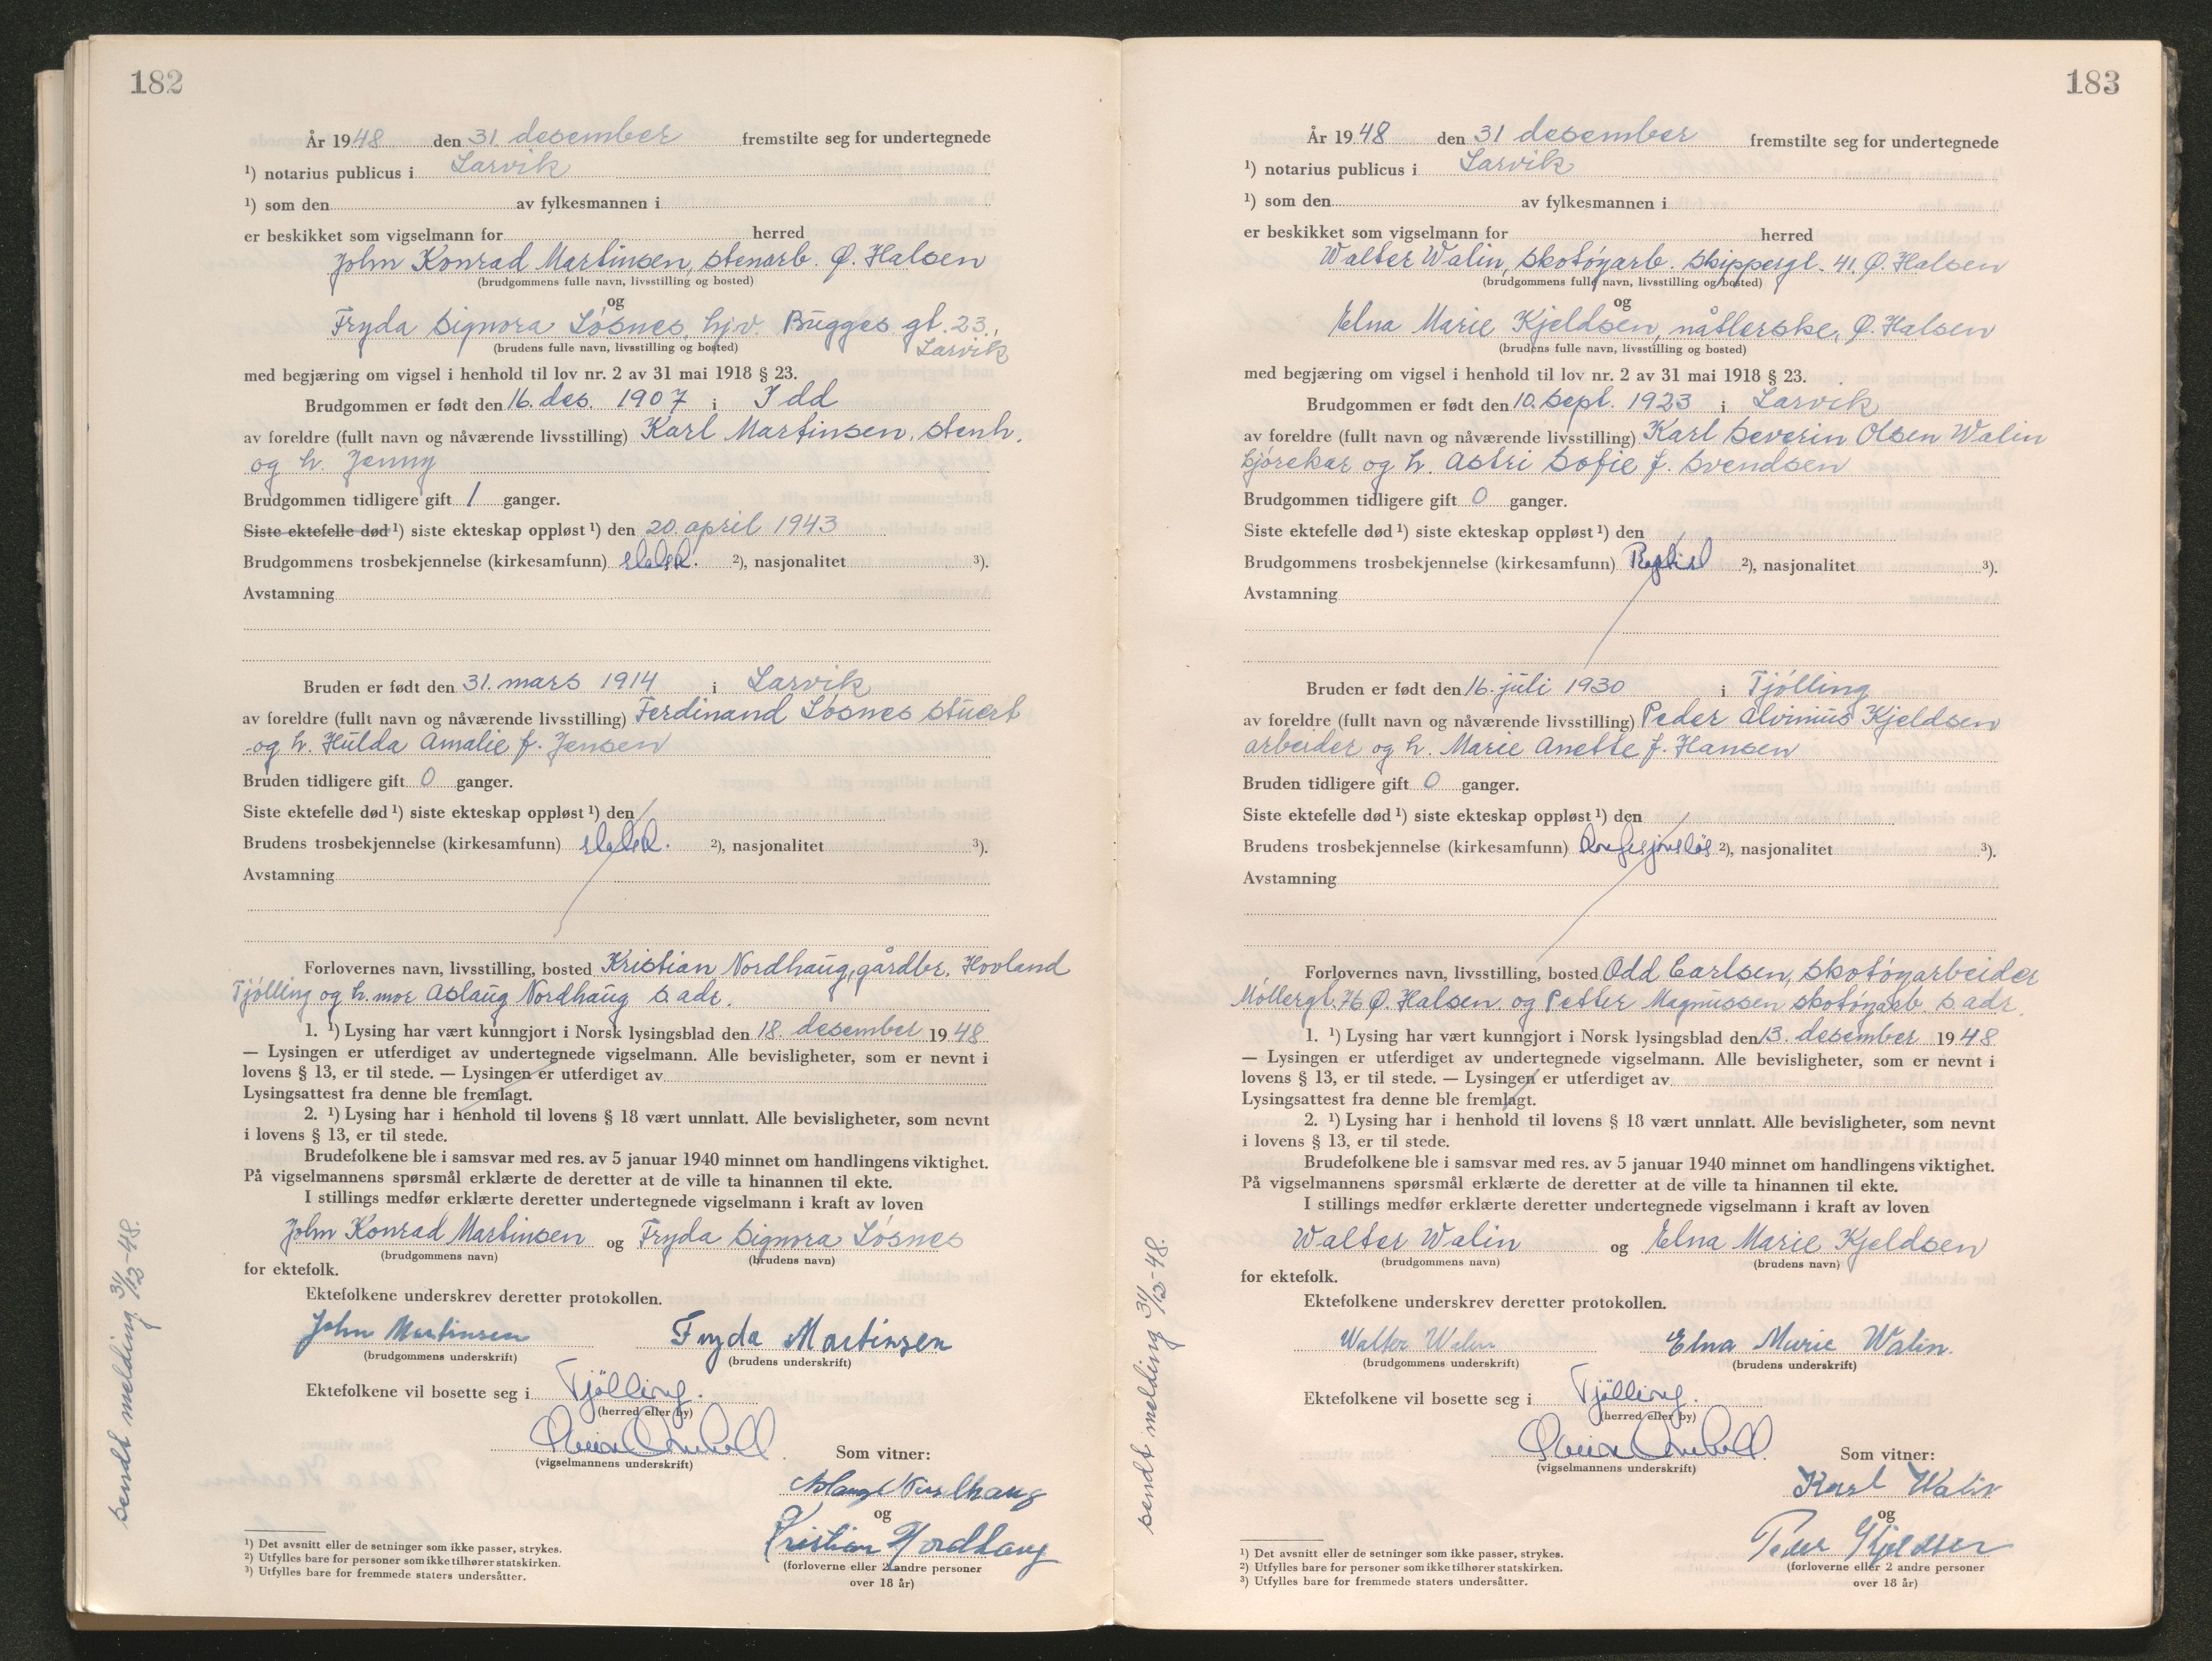 182
År 1948 den 31 desember fremstilte seg for undertegnede
¹) notarius publicus i Larvik
¹) som den av fylkesmannen i
er beskikket som vigselmann for herred
John Konrad Martinsen, stenarb. Ø. Halsen
(brudgommens fulle navn, livsstilling og bosted)
og
Fryda Signora Løsnes, hj.v. Bugges gt. 23.,
Larvik
(brudens fulle navn, livsstilling og bosted)
med begjæring om vigsel i henhold til lov nr. 2 av 31 mai 1918 § 23.
Brudgommen er født den 16. des. 1907 i Idd
av foreldre (fullt navn og nåværende livsstilling) Karl Martinsen, stenh.
og h. Jenny
Brudgommen tidligere gift 1 ganger.
Siste ektefelle død ¹) siste ekteskap oppløst ¹) den 20. april 1943
Brudgommens trosbekjennelse (kirkesamfunn) statsk. ²), nasjonalitet ³).
Avstamning
Bruden er født den 31. mars 1914 i Larvik
av foreldre (fullt navn og nåværende livsstilling) Ferdinand Løsnes stuert
og h. Hulda Amalie f. Jensen
Bruden tidligere gift 0 ganger.
Siste ektefelle død ¹) siste ekteskap oppløst ¹) den
Brudens trosbekjennelse (kirkesamfunn) statsk. ²), nasjonalitet ³).
Avstamning
Forlovernes navn, livsstilling, bosted Kristian Nordhaug, gårdbr. Hovland
Tjølling og h. mor Aslaug Nordhaug s. adr.
1. ¹) Lysing har vært kunngjort i Norsk lysingsblad den 18. desember 1948
— Lysingen er utferdiget av undertegnede vigselmann. Alle bevisligheter, som er nevnt i
lovens § 13, er til stede. — Lysingen er utferdiget av
Lysingsattest fra denne ble fremlagt.
2. ¹) Lysing har i henhold til lovens § 18 vært unnlatt. Alle bevisligheter, som nevnt
i lovens § 13, er til stede.
Brudefolkene ble i samsvar med res. av 5 januar 1940 minnet om handlingens viktighet.
På vigselmannens spørsmål erklærte de deretter at de ville ta hinannen til ekte.
I stillings medfør erklærte deretter undertegnede vigselmann i kraft av loven
John Konrad Martinsen og Fryda Signora Løsnes
(brudgommens navn) (brudens navn)
for ektefolk.
Ektefolkene underskrev deretter protokollen.
John Martinsen Fryda Martinsen
(brudgommens underskrift) (brudens underskrift)
Ektefolkene vil bosette seg i Tjølling.
(herred eller by)
(vigselmannens underskrift)
Som vitner:
Aslaug Nordhaug
og
Kristian Nordhaug
(forloverne eller 2 andre personer
over 18 år)
¹) Det avsnitt eller de setninger som ikke passer, strykes.
²) Utfylles bare for personer som ikke tilhører statskirken.
³) Utfylles bare for fremmede staters undersåtter.
sendt melding 31/12-48.
183
År 1948 den 31 desember fremstilte seg for undertegnede
¹) notarius publicus i Larvik
¹) som den av fylkesmannen i
er beskikket som vigselmann for herred
Walter Walin, skotøyarb. Skippergt. 41, Ø. Halsen
(brudgommens fulle navn, livsstilling og bosted)
og
Elna Marie Kjeldsen, nåtlerske, Ø. Halsen
(brudens fulle navn, livsstilling og bosted)
med begjæring om vigsel i henhold til lov nr. 2 av 31 mai 1918 § 23.
Brudgommen er født den 10. sept. 1923 i Larvik
av foreldre (fullt navn og nåværende livsstilling) Karl Severin Olsen Walin
kjørekar og h. Astri Sofie f. Svendsen
Brudgommen tidligere gift 0 ganger.
Siste ektefelle død ¹) siste ekteskap oppløst ¹) den
Brudgommens trosbekjennelse (kirkesamfunn) Baptist ²), nasjonalitet ³).
Avstamning
Bruden er født den 16. juli 1930 i Tjølling
av foreldre (fullt navn og nåværende livsstilling) Peder Alvinius Kjeldsen
arbeider og h. Marie Anette f. Hansen
Bruden tidligere gift 0 ganger.
Siste ektefelle død ¹) siste ekteskap oppløst ¹) den
Brudens trosbekjennelse (kirkesamfunn) konfesjonsløs ²), nasjonalitet ³).
Avstamning
Forlovernes navn, livsstilling, bosted Odd Carlsen, skotøyarbeider
Møllergt. 76 Ø. Halsen og Petter Magnussen skotøyarb. s adr.
1. ¹) Lysing har vært kunngjort i Norsk lysingsblad den 13. desember 1948
— Lysingen er utferdiget av undertegnede vigselmann. Alle bevisligheter, som er nevnt i
lovens § 13, er til stede. — Lysingen er utferdiget av
Lysingsattest fra denne ble fremlagt.
2. ¹) Lysing har i henhold til lovens § 18 vært unnlatt. Alle bevisligheter, som nevnt
i lovens § 13, er til stede.
Brudefolkene ble i samsvar med res. av 5 januar 1940 minnet om handlingens viktighet.
På vigselmannens spørsmål erklærte de deretter at de ville ta hinannen til ekte.
I stillings medfør erklærte deretter undertegnede vigselmann i kraft av loven
Walter Walin og Elna Marie Kjeldsen
(brudgommens navn) (brudens navn)
for ektefolk.
Ektefolkene underskrev deretter protokollen.
Walter Walin Elna Marie Walin.
(brudgommens underskrift) (brudens underskrift)
Ektefolkene vil bosette seg i Tjølling.
(herred eller by)
(vigselmannens underskrift)
Som vitner:
Karl Walin
og
Peder Kjeldsen
(forloverne eller 2 andre personer
over 18 år)
¹) Det avsnitt eller de setninger som ikke passer, strykes.
²) Utfylles bare for personer som ikke tilhører statskirken.
³) Utfylles bare for fremmede staters undersåtter.
sendt melding 31/12-48.